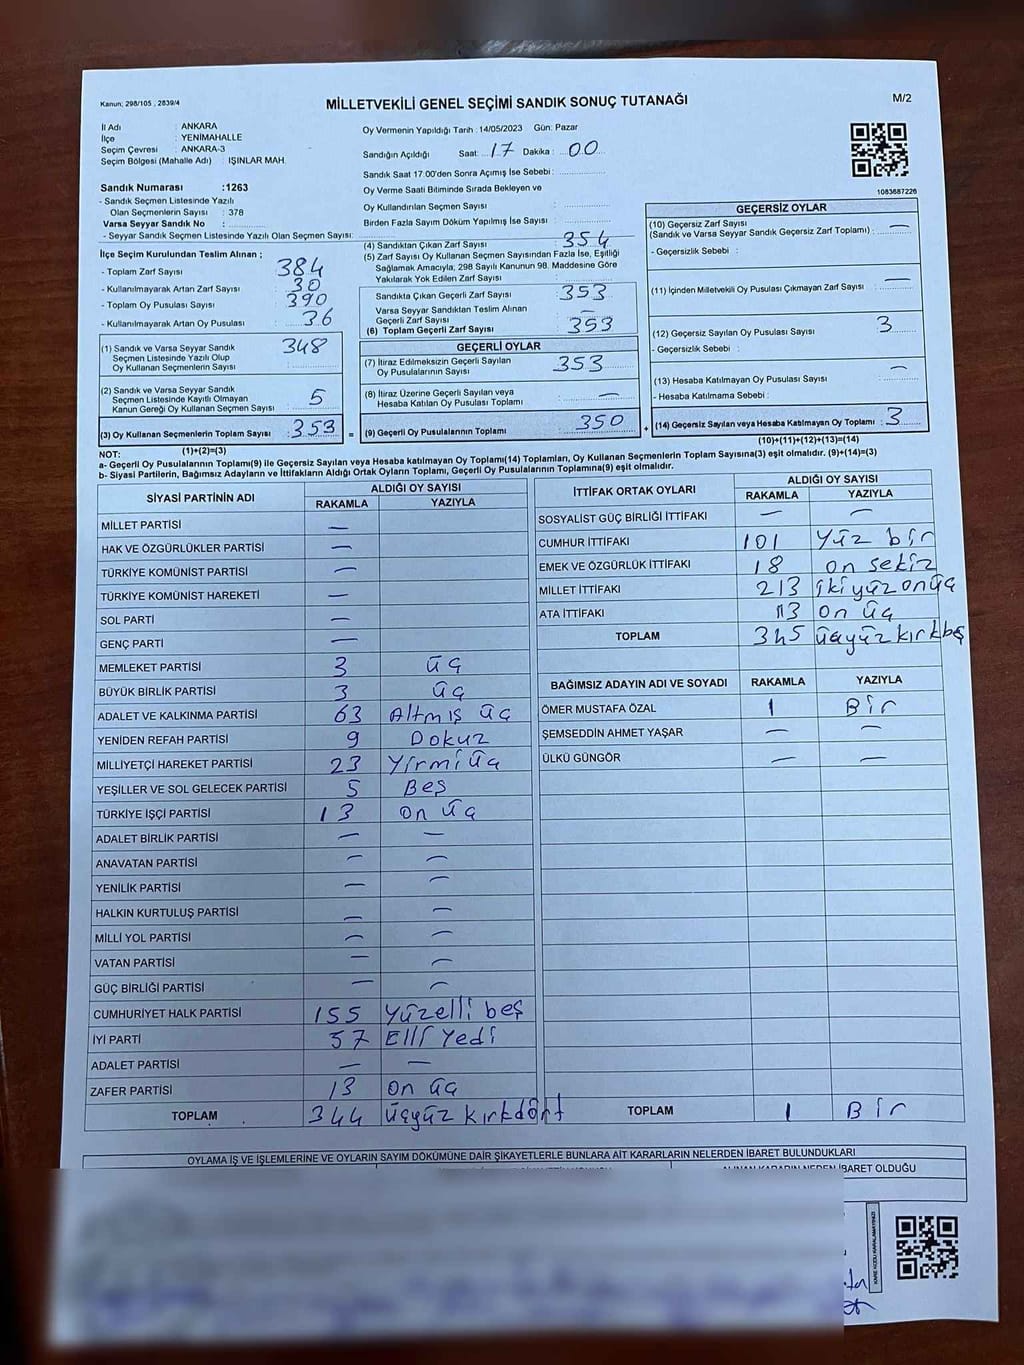 Kanun; 298/105 , 2839/4
MİLLETVEKİLİ GENEL SEÇİMİ SANDIK SONUÇ TUTANAĞI
M/2
İl Adı : ANKARA
İlçe : YENİMAHALLE
Seçim Çevresi : ANKARA-3
Seçim Bölgesi (Mahalle Adı) : IŞINLAR MAH.
Oy Vermenin Yapıldığı Tarih : 14/05/2023 Gün: Pazar
Sandığın Açıldığı Saat: 17 Dakika : 00
Sandık Saat 17.00'den Sonra Açılmış İse Sebebi :
Oy Verme Saati Bitiminde Sırada Bekleyen ve
Oy Kullandırılan Seçmen Sayısı :
Birden Fazla Sayım Döküm Yapılmış İse Sayısı :
1083687226
Sandık Numarası :1263
- Sandık Seçmen Listesinde Yazılı
Olan Seçmenlerin Sayısı : 378
Varsa Seyyar Sandık No :
- Seyyar Sandık Seçmen Listesinde Yazılı Olan Seçmen Sayısı:
İlçe Seçim Kurulundan Teslim Alınan ;
- Toplam Zarf Sayısı : 384
- Kullanılmayarak Artan Zarf Sayısı : 30
- Toplam Oy Pusulası Sayısı : 390
- Kullanılmayarak Artan Oy Pusulası : 36
(1) Sandık ve Varsa Seyyar Sandık
Seçmen Listesinde Yazılı Olup
Oy Kullanan Seçmenlerin Sayısı : 348
(2) Sandık ve Varsa Seyyar Sandık
Seçmen Listesinde Kayıtlı Olmayan
Kanun Gereği Oy Kullanan Seçmen Sayısı : 5
(3) Oy Kullanan Seçmenlerin Toplam Sayısı : 353
(1)+(2)=(3)
(4) Sandıktan Çıkan Zarf Sayısı : 354
(5) Zarf Sayısı Oy Kullanan Seçmen Sayısından Fazla İse, Eşitliği
Sağlamak Amacıyla, 298 Sayılı Kanunun 98. Maddesine Göre
Yakılarak Yok Edilen Zarf Sayısı :
Sandıkta Çıkan Geçerli Zarf Sayısı : 353
Varsa Seyyar Sandıktan Teslim Alınan
Geçerli Zarf Sayısı : —
(6) Toplam Geçerli Zarf Sayısı : 353
GEÇERLİ OYLAR
(7) İtiraz Edilmeksizin Geçerli Sayılan
Oy Pusulalarının Sayısı : 353
(8) İtiraz Üzerine Geçerli Sayılan veya
Hesaba Katılan Oy Pusulası Toplamı : —
= (9) Geçerli Oy Pusulalarının Toplamı : 350
GEÇERSİZ OYLAR
(10) Geçersiz Zarf Sayısı
(Sandık ve Varsa Seyyar Sandık Geçersiz Zarf Toplamı) : —
- Geçersizlik Sebebi :
(11) İçinden Milletvekili Oy Pusulası Çıkmayan Zarf Sayısı : —
(12) Geçersiz Sayılan Oy Pusulası Sayısı : 3
- Geçersizlik Sebebi :
(13) Hesaba Katılmayan Oy Pusulası Sayısı : —
- Hesaba Katılmama Sebebi :
+ (14) Geçersiz Sayılan veya Hesaba Katılmayan Oy Toplamı : 3
(10)+(11)+(12)+(13)=(14)
NOT:
a- Geçerli Oy Pusulalarının Toplamı(9) ile Geçersiz Sayılan veya Hesaba katılmayan Oy Toplamı(14) Toplamları, Oy Kullanan Seçmenlerin Toplam Sayısına(3) eşit olmalıdır. (9)+(14)=(3)
b- Siyasi Partilerin, Bağımsız Adayların ve İttifakların Aldığı Ortak Oyların Toplamı, Geçerli Oy Pusulalarının Toplamına(9) eşit olmalıdır.
SİYASİ PARTİNİN ADI ALDIĞI OY SAYISI
RAKAMLA YAZIYLA
MİLLET PARTİSİ —
HAK VE ÖZGÜRLÜKLER PARTİSİ —
TÜRKİYE KOMÜNİST PARTİSİ —
TÜRKİYE KOMÜNİST HAREKETİ —
SOL PARTİ —
GENÇ PARTİ —
MEMLEKET PARTİSİ 3 üç
BÜYÜK BİRLİK PARTİSİ 3 üç
ADALET VE KALKINMA PARTİSİ 63 Altmış üç
YENİDEN REFAH PARTİSİ 9 Dokuz
MİLLİYETÇİ HAREKET PARTİSİ 23 Yirmi üç
YEŞİLLER VE SOL GELECEK PARTİSİ 5 Beş
TÜRKİYE İŞÇİ PARTİSİ 13 On üç
ADALET BİRLİK PARTİSİ — —
ANAVATAN PARTİSİ — —
YENİLİK PARTİSİ — —
HALKIN KURTULUŞ PARTİSİ — —
MİLLİ YOL PARTİSİ — —
VATAN PARTİSİ — —
GÜÇ BİRLİĞİ PARTİSİ — —
CUMHURİYET HALK PARTİSİ 155 Yüzelli beş
İYİ PARTİ 57 Elli Yedi
ADALET PARTİSİ — —
ZAFER PARTİSİ 13 On üç
TOPLAM 344 üçyüz kırkdört
İTTİFAK ORTAK OYLARI ALDIĞI OY SAYISI
RAKAMLA YAZIYLA
SOSYALİST GÜÇ BİRLİĞİ İTTİFAKI — —
CUMHUR İTTİFAKI 101 Yüz bir
EMEK VE ÖZGÜRLÜK İTTİFAKI 18 on sekiz
MİLLET İTTİFAKI 213 ikiyüz onüç
ATA İTTİFAKI 13 On üç
TOPLAM 345 üçyüz kırkbeş
BAĞIMSIZ ADAYIN ADI VE SOYADI RAKAMLA YAZIYLA
ÖMER MUSTAFA ÖZAL 1 Bir
ŞEMSEDDİN AHMET YAŞAR — —
ÜLKÜ GÜNGÖR — —
TOPLAM 1 Bir
OYLAMA İŞ VE İŞLEMLERİNE VE OYLARIN SAYIM DÖKÜMÜNE DAİR ŞİKAYETLERLE BUNLARA AİT KARARLARIN NELERDEN İBARET BULUNDUKLARI
ALINAN KARARIN NEDEN İBARET OLDUĞU